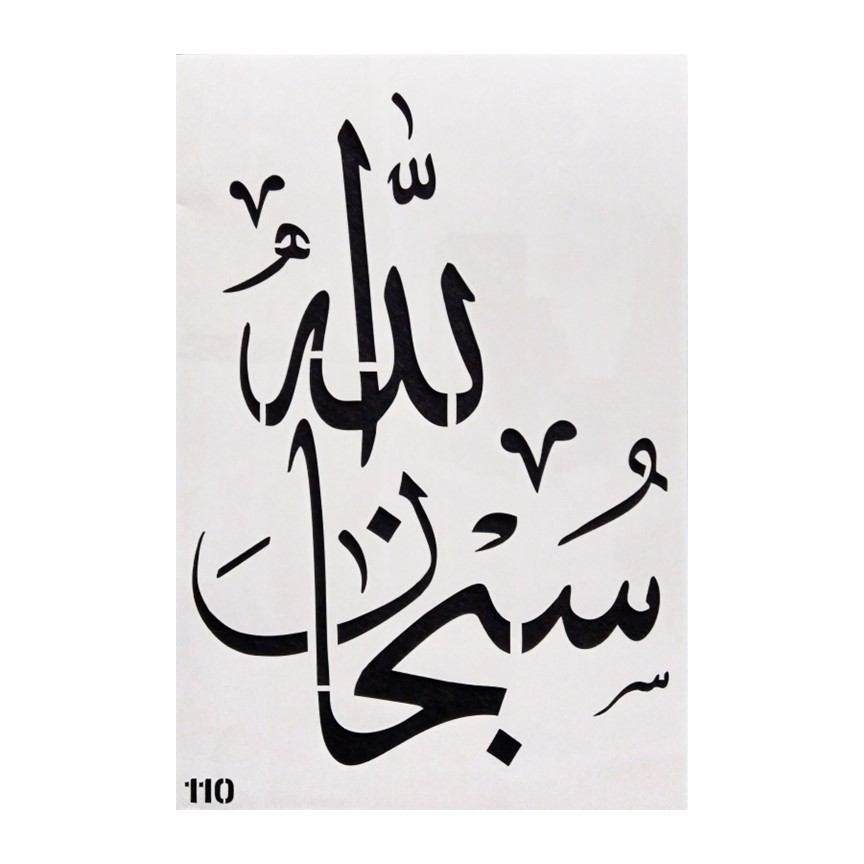 سُبْحَانَ
اللّٰهُ
110